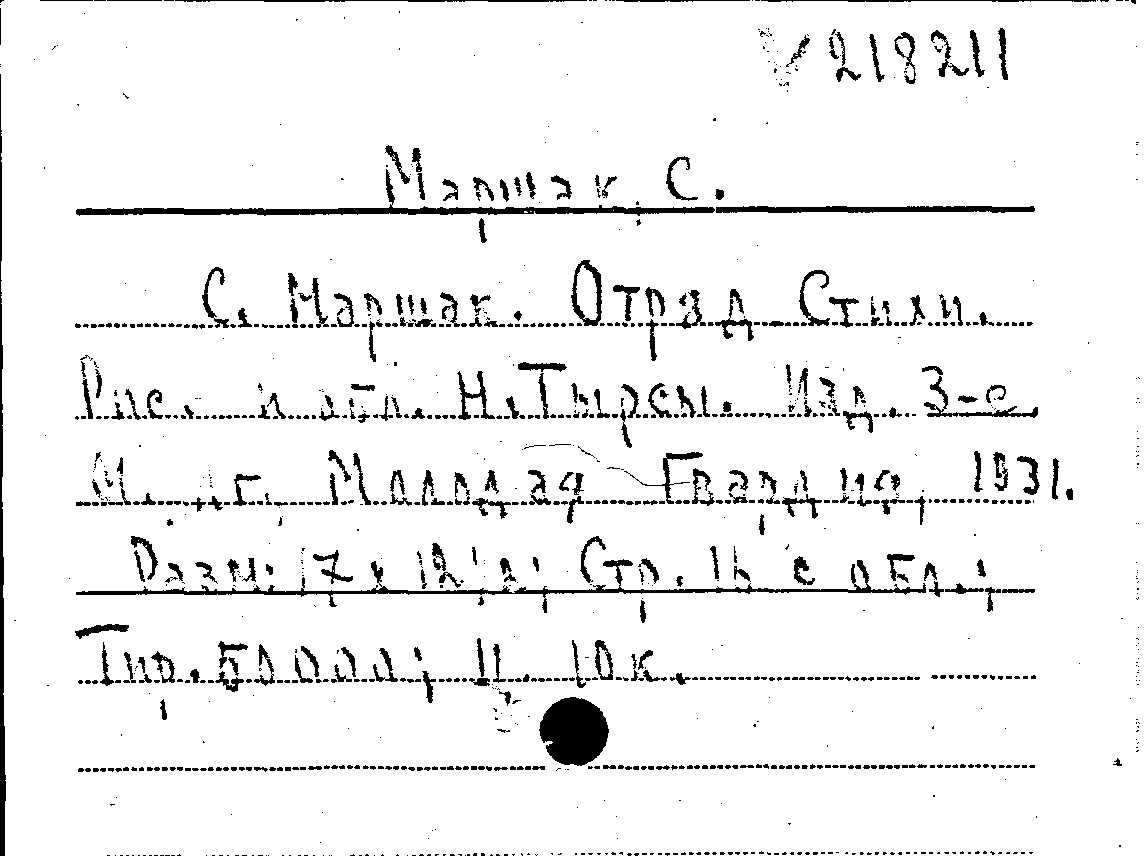 V 218211
Маршак, С.
С. Маршак. Отряд. Стихи.
Рис. и обл. Н. Тырсы. Изд. 3-е.
М. Лг. Молодая Гвардия, 1931.
Разм: 17 х 12 1/2; Стр. 16 с обл.;
Тир. 50000; Ц. 10 к.